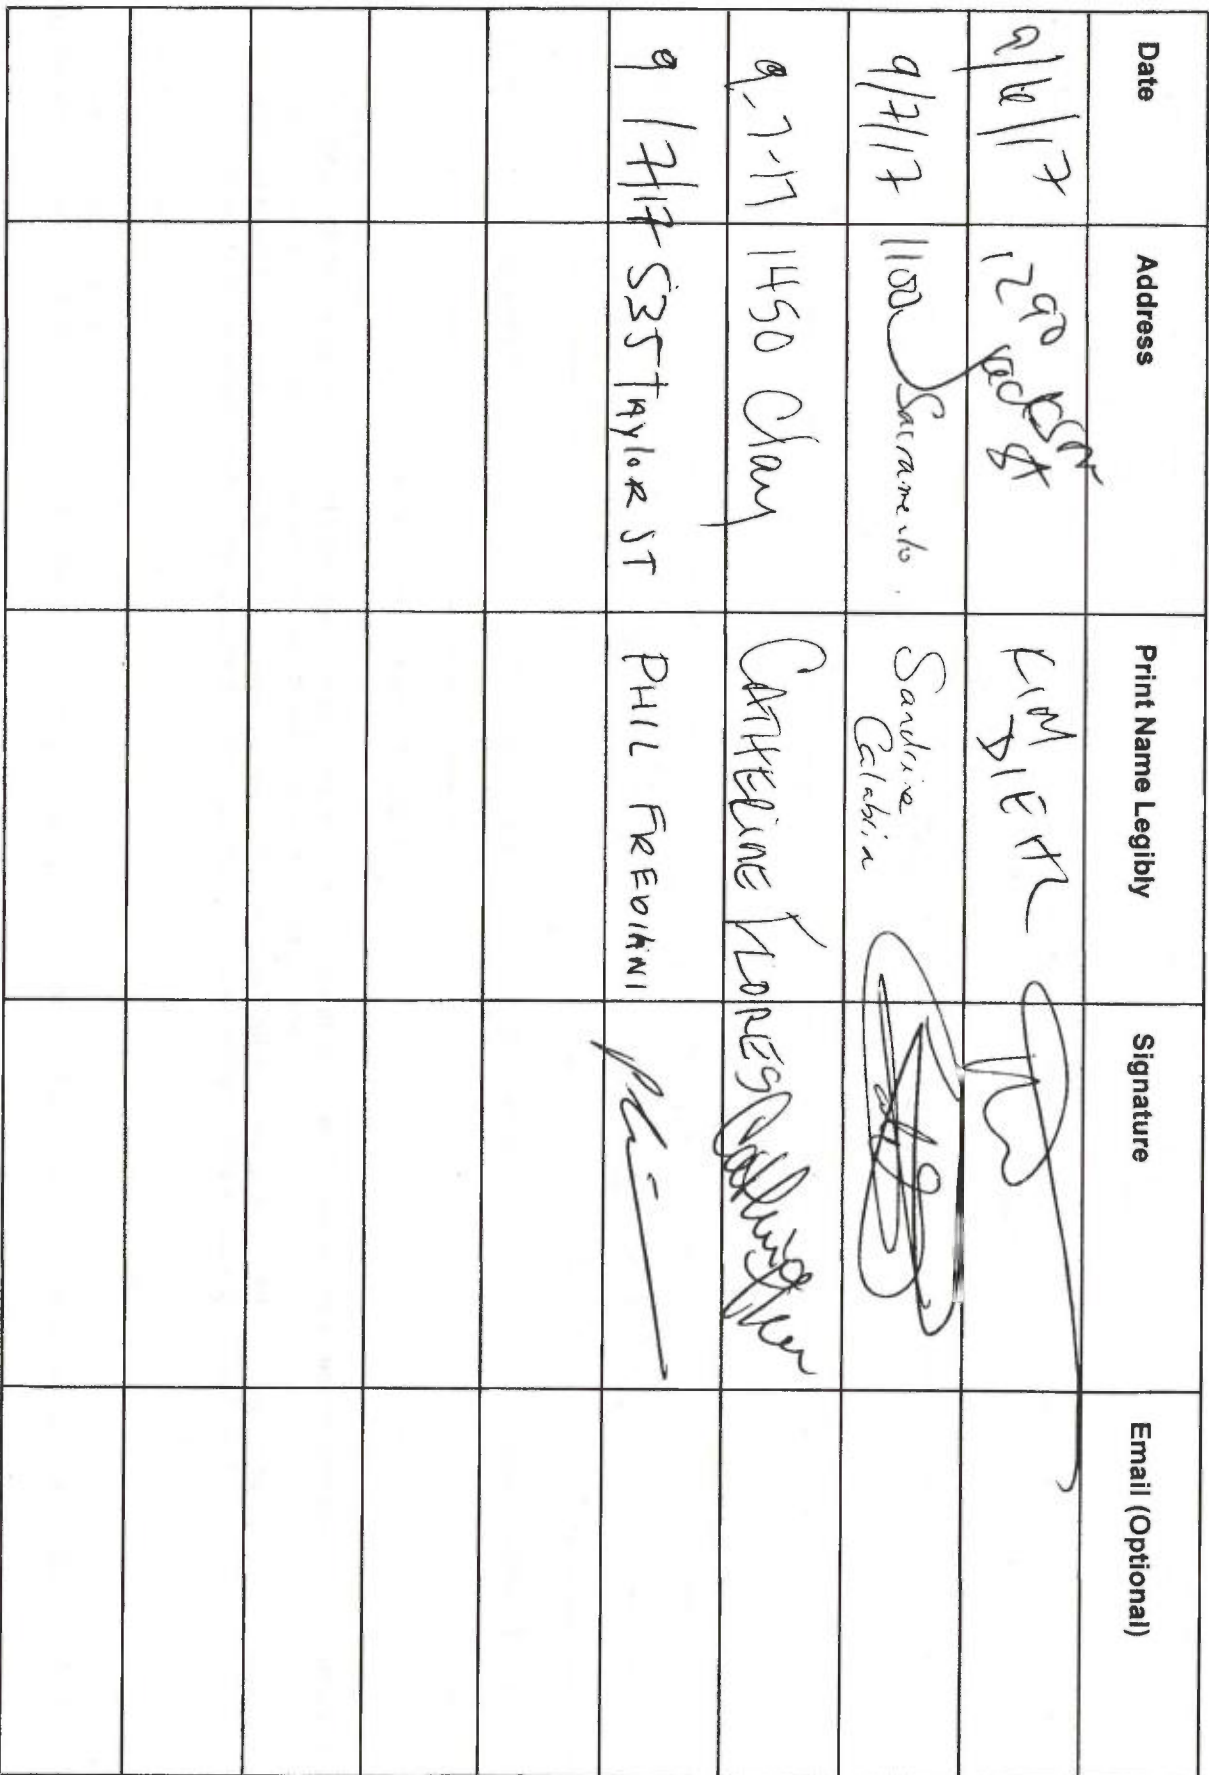 Date Address Print Name Legibly Signature Email (Optional)
9/6/17 1290 Jackson St KIM DIEHL
9/7/17 1100 Sacramento. Sandrine Calabria
9-7-17 1450 Clay CATHERINE FLORES
9/7/17 535 TAYLOR ST PHIL FREDIANI